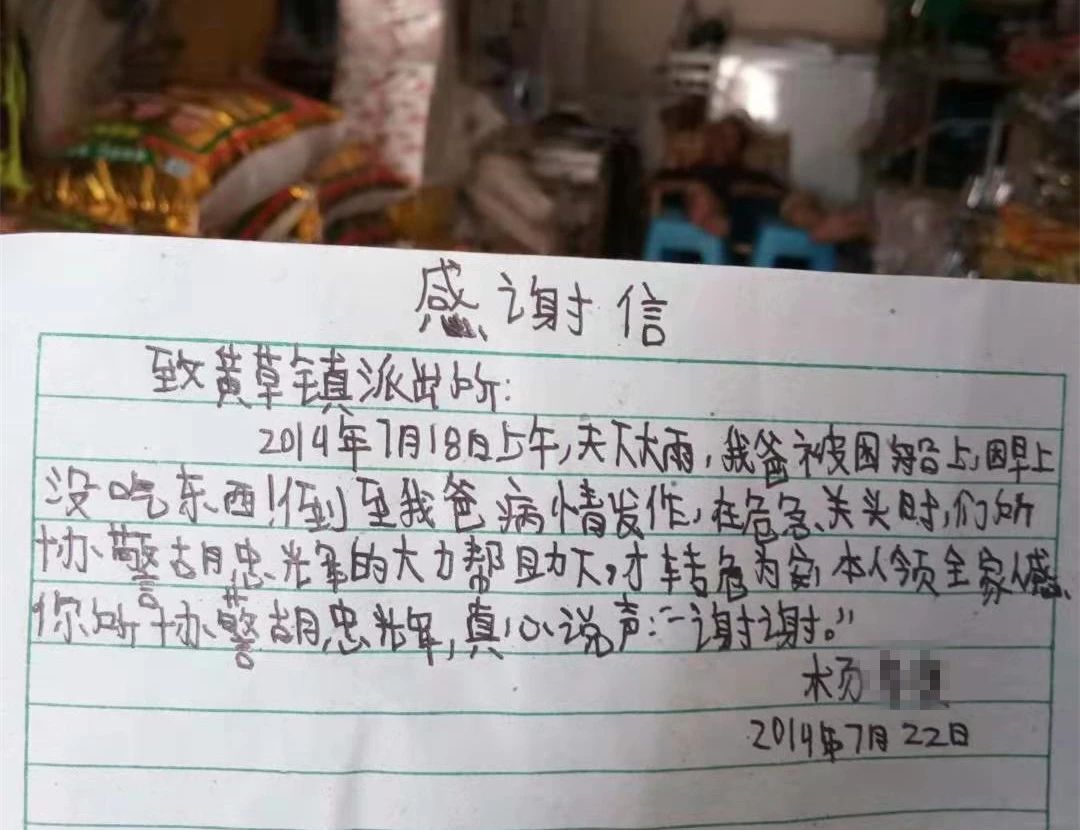 感谢信
致黄草镇派出所:
2014年7月18日上午,天下大雨,我爸被困船上,因早上
没吃东西!倒至我爸病情发作,在危急关头时,们所
协警胡忠辉的大力帮助下,才转危为安,本人领全家人感
你所协警胡忠辉,真心说声:“谢谢。”
杨
2014年7月22日